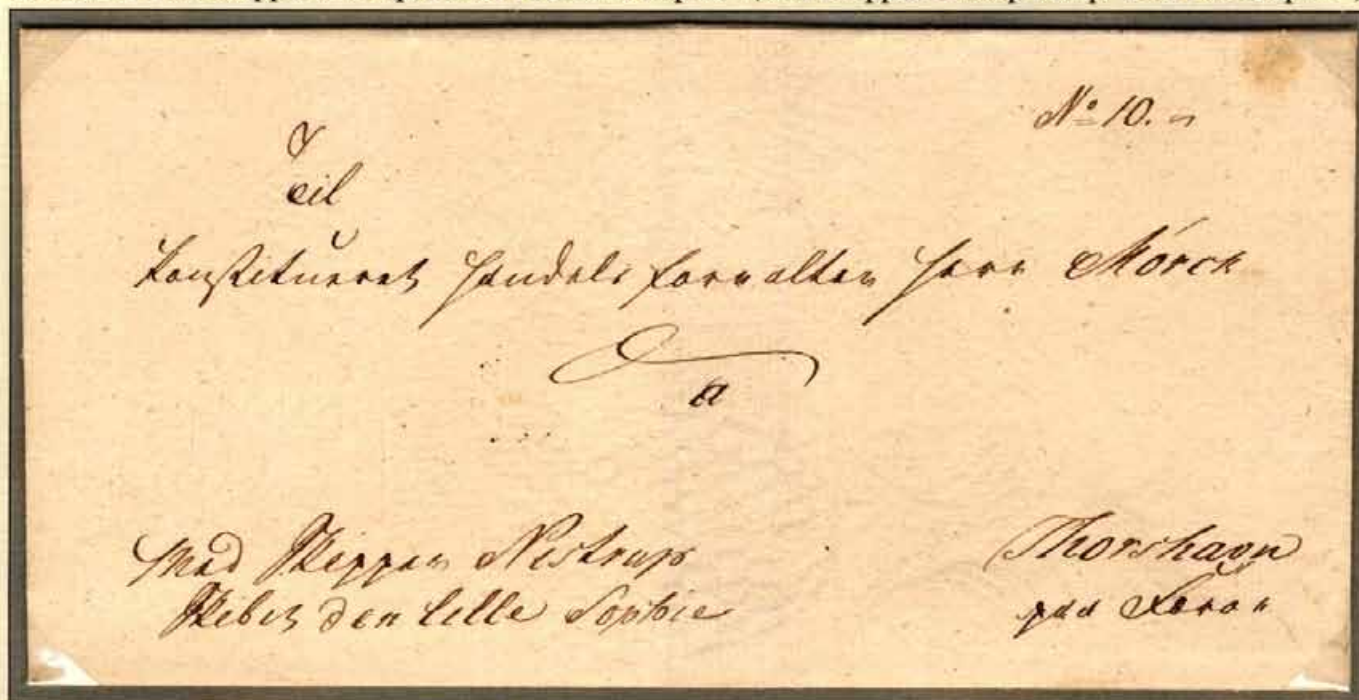 No 10.
Til
Constitueret Handels forvalter Herr Mörch
a
Med Skipper Nistrup
Skibet den lille Sophie
Thorshavn
paa Færøe